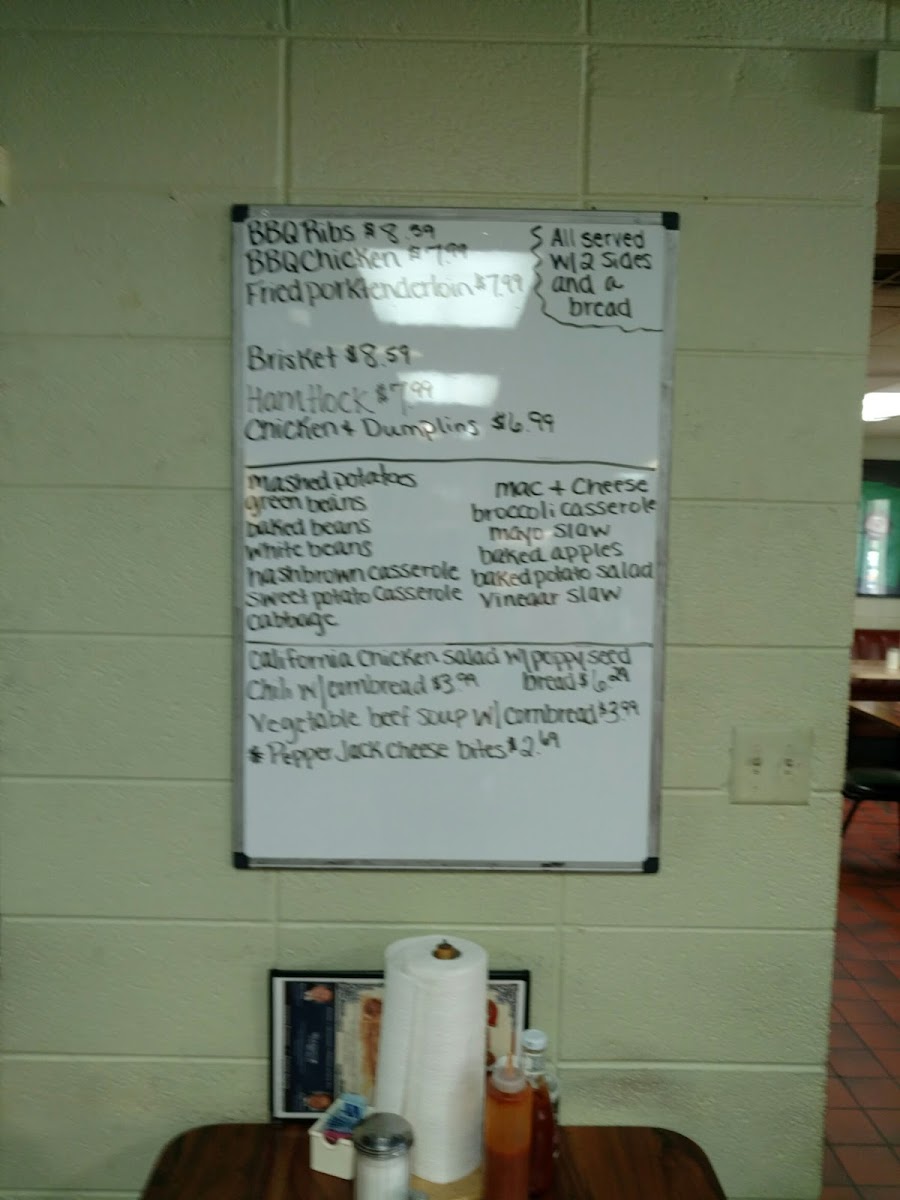 BBQ Ribs $8.59
BBQ Chicken $7.99
Fried pork tenderloin $7.99
All served
w/2 sides
and a
bread
Brisket $8.59
Ham Hock $7.99
Chicken + Dumplins $6.99
mashed potatoes
green beans
baked beans
white beans
hashbrown casserole
sweet potato casserole
cabbage
mac + cheese
broccoli casserole
mayo slaw
baked apples
baked potato salad
vinegar slaw
California Chicken salad w/ poppyseed
bread $6.29
Chili w/ cornbread $3.99
Vegetable beef soup w/ cornbread $3.99
* Pepper Jack cheese bites $2.69